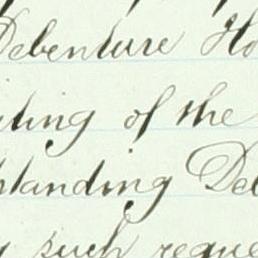 Debenture Ho
iting of the
standing De
such reque